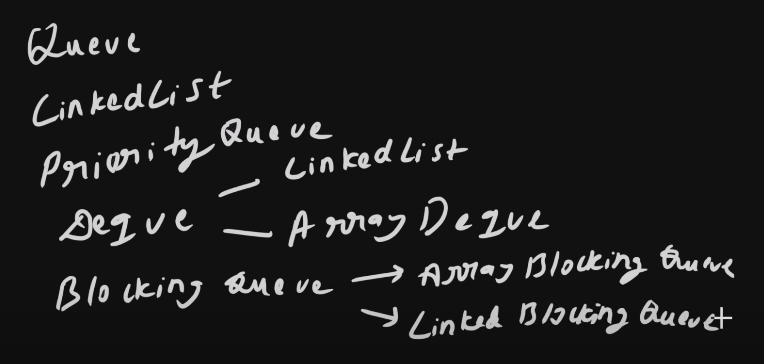 Queue
LinkedList
Priority Queue
Deque — LinkedList
— Array Deque
Blocking Queue → Array Blocking Queue
→ Linked Blocking Queue